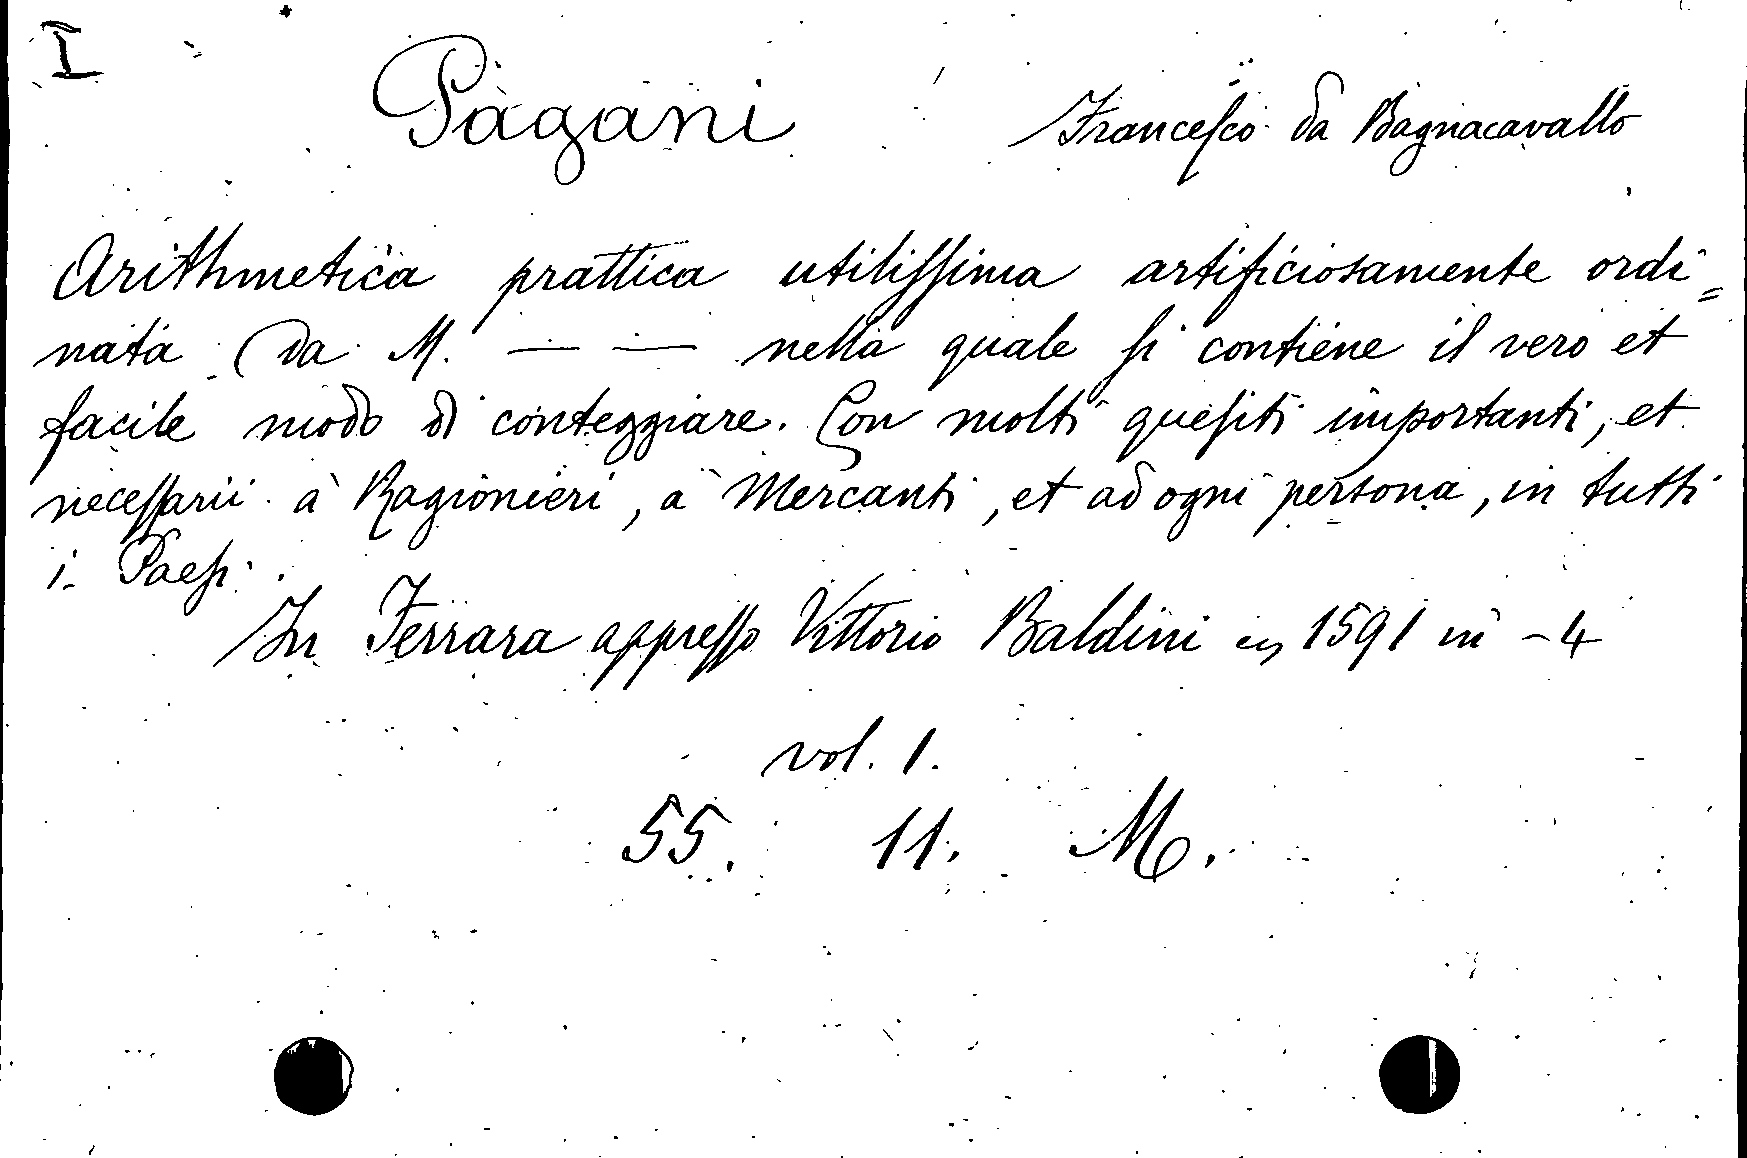 I
Pagani Francesco da Bagnacavallo
Arithmetica prattica utilissima artificiosamente ordi=
nata da M. — — nella quale si contiene il vero et
facile modo di conteggiare. Con molti quesiti importanti, et
necessarii à Ragionieri, à Mercanti, et ad ogni persona, in tutti
i Paesi.
In Ferrara appresso Vittorio Baldini 1591 in -4
vol. 1.
55. 11. M.